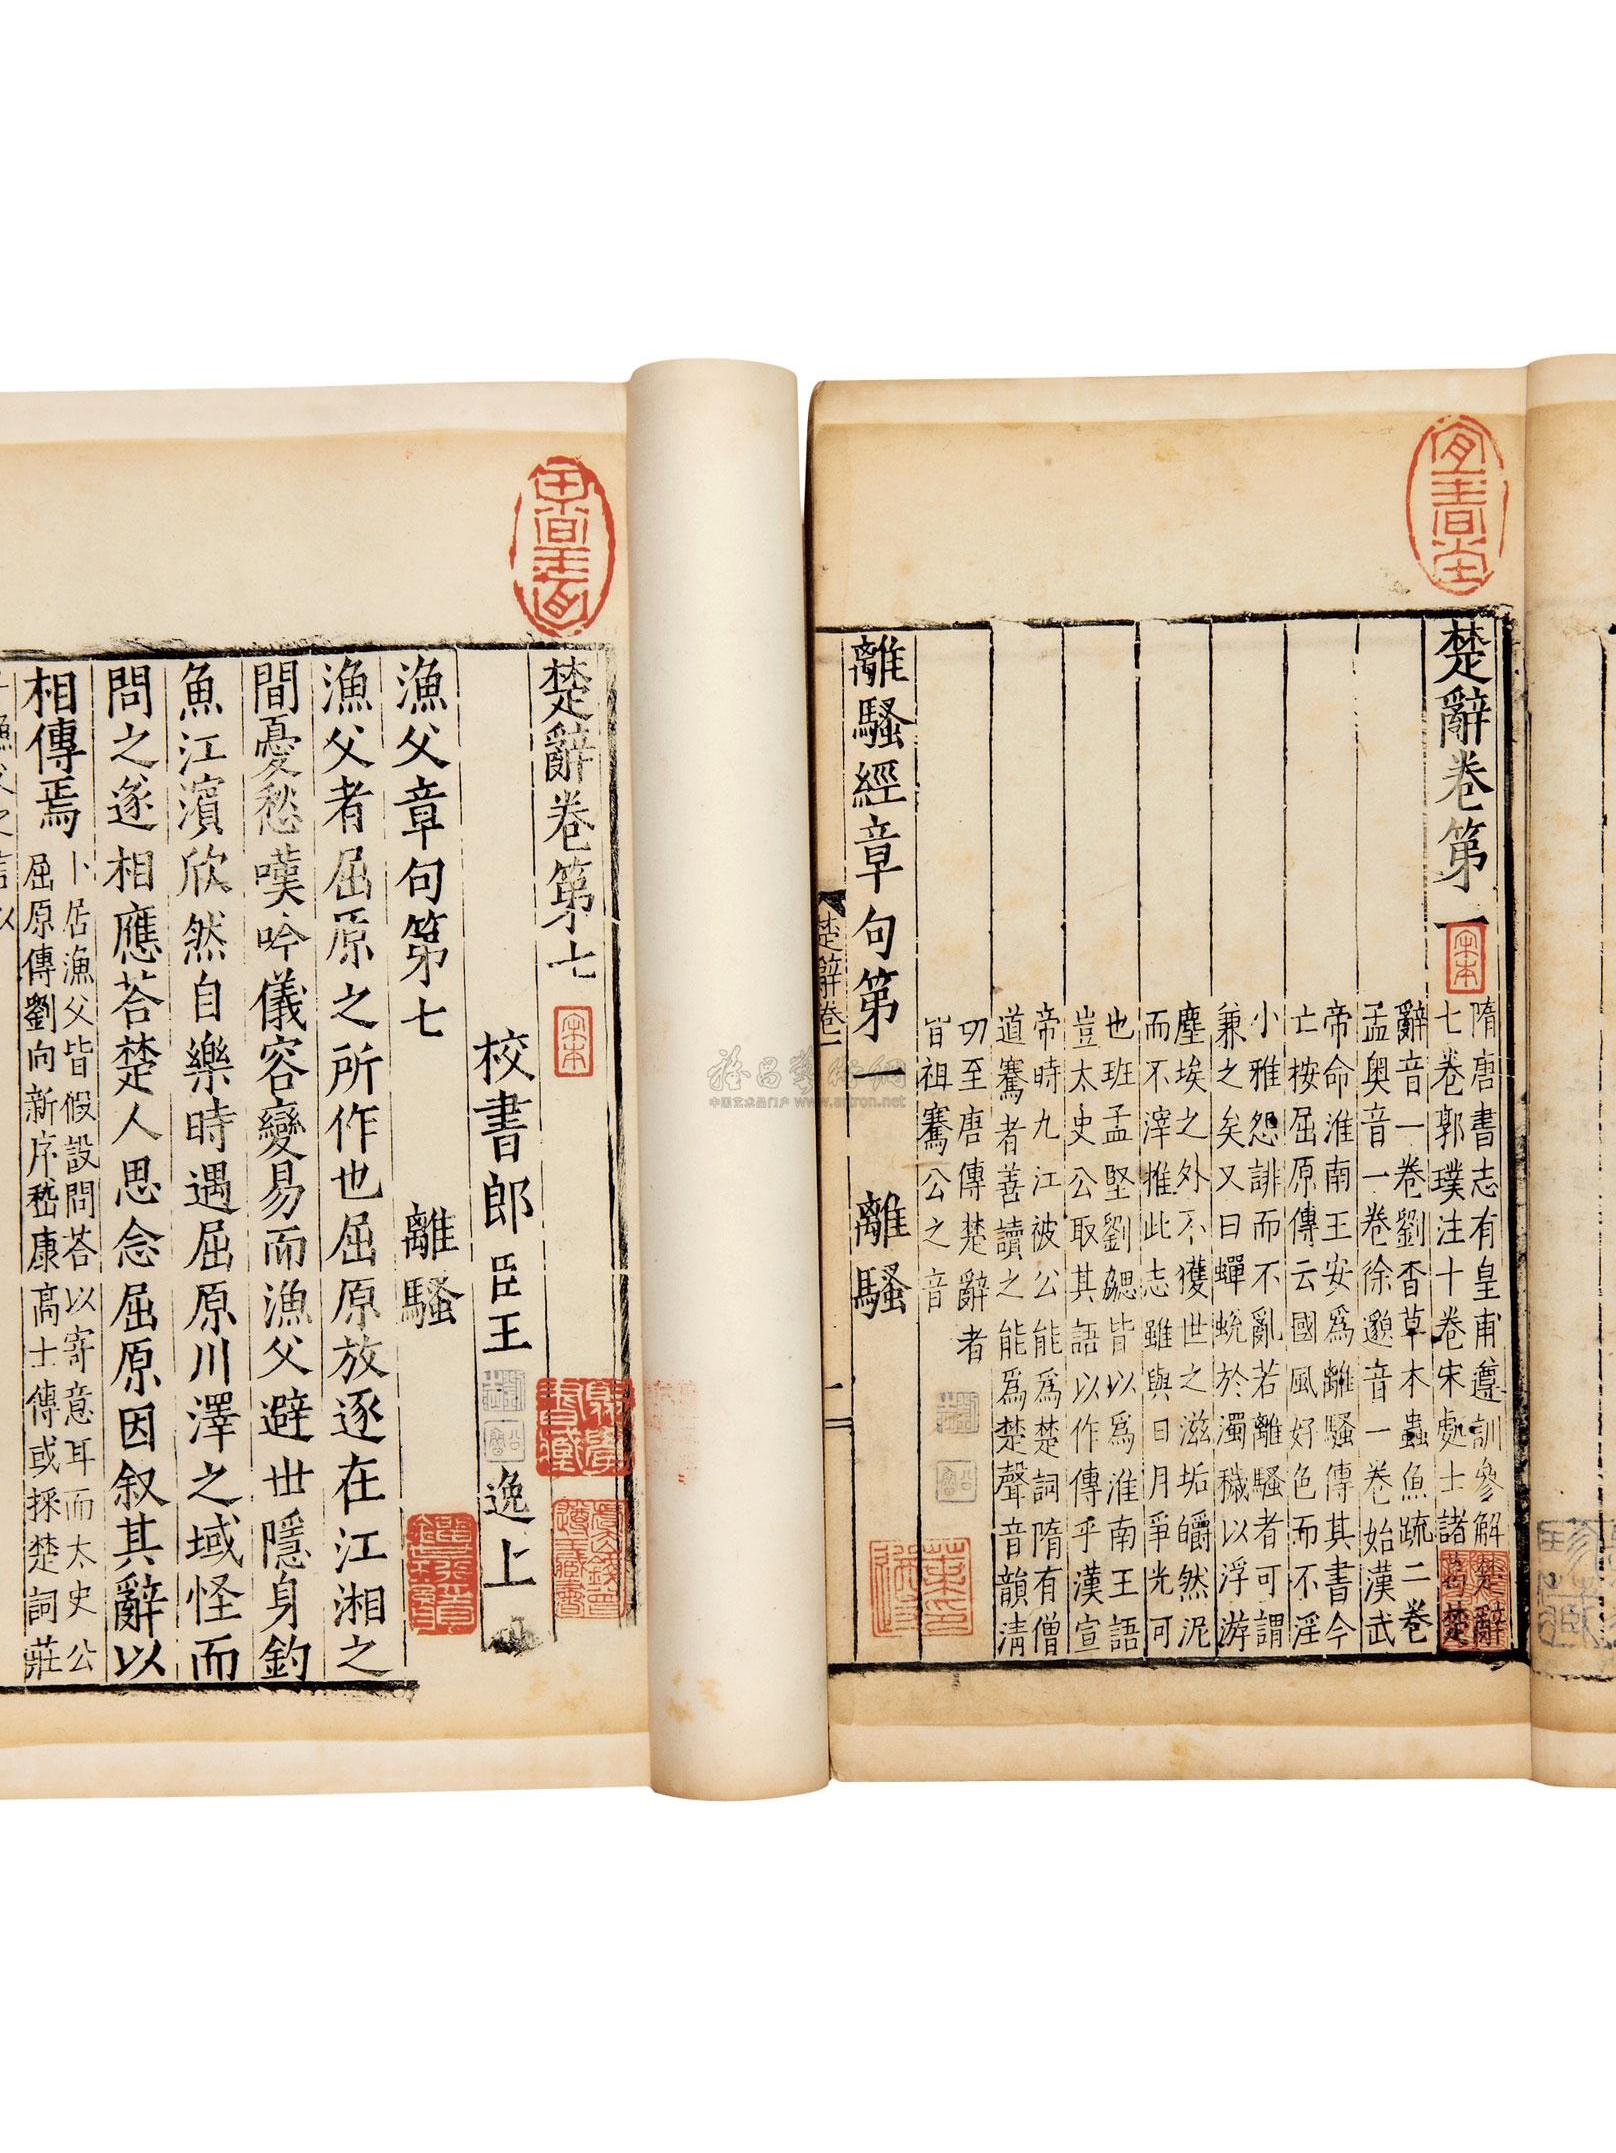 楚辭卷第一
宋本
隋唐書志有皇甫遵訓參解楚辭
七卷郭璞注十卷宋處士諸葛楚
辭音一卷劉杳草木蟲魚疏二卷
孟奧音一卷徐邈音一卷始漢武
帝命淮南王安爲離騷傳其書今
亡按屈原傳云國風好色而不淫
小雅怨誹而不亂若離騷者可謂
兼之矣又曰蟬蛻於濁穢以浮游
塵埃之外不獲世之滋垢皭然泥
而不滓推此志雖與日月爭光可
也班孟堅劉勰皆以爲淮南王語
豈太史公取其語以作傳乎漢宣
帝時九江被公能爲楚詞隋有僧
道騫者善讀之能爲楚聲音韻清
切至唐傳楚辭者
皆祖騫公之音
離騷經章句第一 離騷
楚辭卷一
楚辭卷第七
宋本
校書郎臣王逸上
漁父章句第七 離騷
漁父者屈原之所作也屈原放逐在江湘之
間憂愁嘆吟儀容變易而漁父避世隱身釣
魚江濱欣然自樂時遇屈原川澤之域怪而
問之遂相應荅楚人思念屈原因叙其辭以
相傳焉
卜居漁父皆假設問荅以寄意耳而太史公
屈原傳劉向新序嵇康高士傳或採楚詞莊
中国艺术品门户 www.artron.net